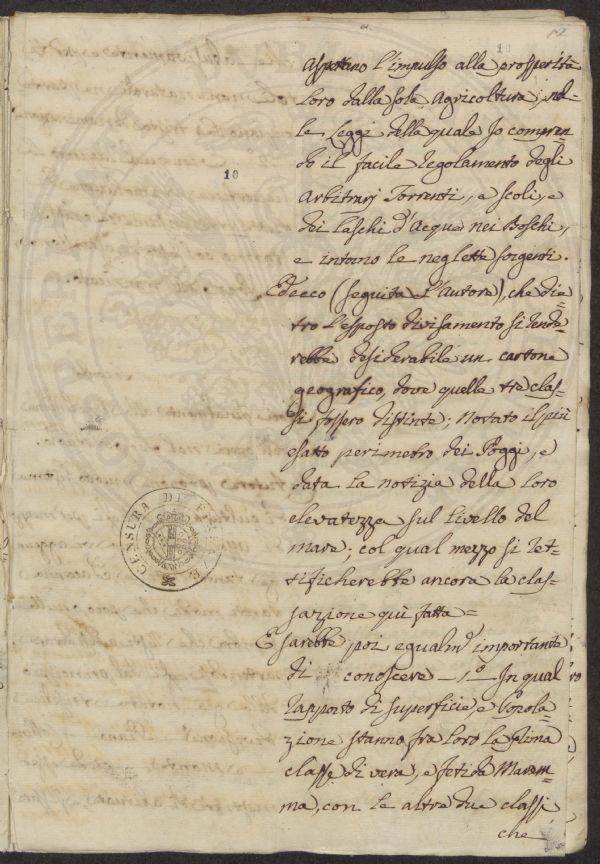 10
12
10
aspettano l'impulso alla prosperità
loro dalla sola Agricoltura, nel=
le Leggi della quale Io compren=
do il facile regolamento degli
Arbitrarj Torrenti, e scoli, e
dei Laschi d'Acque nei Boschi,
e intorno le neglette sorgenti.
Ed ecco (seguita l'Autore), che die=
tro l'esposto divisamento si rende=
rebbe desiderabile un cartone
geografico, dove quelle tre clas=
si fossero distinte; Notato il più
esatto perimetro dei Poggi, e
data la notizia della loro
elevatezza sul livello del
mare; col qual mezzo si ret=
tificherebbe ancora la clas=
sazione quì fatta =
E sarebbe poi egualm.e importante
di conoscere — 1.o — In qual
rapporto di superficie, e Popola=
zione stanno fra loro la prima
classe di vera, e fetida Marem=
ma, con le altre due classi,
che
CENSURA DI FIRENZE